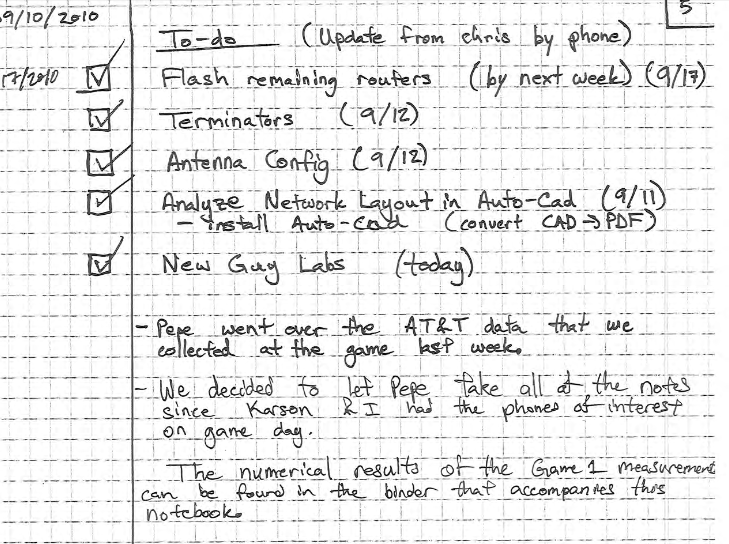 09/10/2010
5
To-do (Update from chris by phone)
17/2010 Flash remaining routers (by next week) (9/17)
Terminators (9/12)
Antenna Config (9/12)
Analyze Network Layout in Auto-Cad (9/11)
- install Auto-Cad (convert CAD → PDF)
New Guy Labs (today)
- Pepe went over the AT&T data that we
collected at the game last week.
- We decided to let Pepe take all of the notes
since Karson & I had the phones of interest
on game day.
The numerical results of the Game 1 measurement
can be found in the binder that accompanies this
notebook.